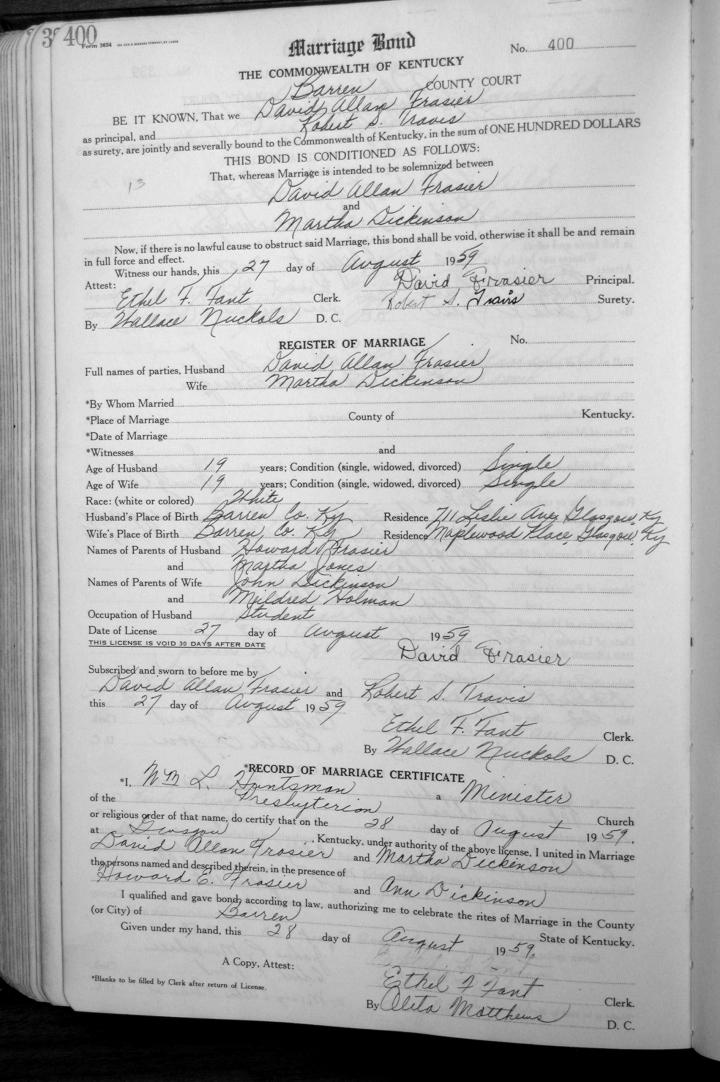 3 400
Form 2654
Marriage Bond
No. 400
THE COMMONWEALTH OF KENTUCKY
Barren COUNTY COURT
BE IT KNOWN, That we David Allan Frasier
as principal, and Robert S. Travis
as surety, are jointly and severally bound to the Commonwealth of Kentucky, in the sum of ONE HUNDRED DOLLARS
THIS BOND IS CONDITIONED AS FOLLOWS:
13
That, whereas Marriage is intended to be solemnized between
David Allan Frasier
and
Martha Dickinson
Now, if there is no lawful cause to obstruct said Marriage, this bond shall be void, otherwise it shall be and remain
in full force and effect.
Witness our hands, this 27 day of August 1959
Attest: David Frasier Principal.
Ethel F. Fant Clerk. Robert S. Travis Surety.
By Wallace Nuckols D. C.
REGISTER OF MARRIAGE No.
Full names of parties, Husband David Allan Frasier
Wife Martha Dickinson
*By Whom Married
*Place of Marriage County of Kentucky.
*Date of Marriage
*Witnesses and
Age of Husband 19 years; Condition (single, widowed, divorced) Single
Age of Wife 19 years; Condition (single, widowed, divorced) Single
Race: (white or colored) White
Husband's Place of Birth Barren Co. Ky Residence 711 Leslie Ave, Glasgow, Ky
Wife's Place of Birth Barren, Co. Ky Residence Maplewood Place, Glasgow, Ky
Names of Parents of Husband Howard Frasier
and Martha Jones
Names of Parents of Wife John Dickinson
and Mildred Holman
Occupation of Husband Student
Date of License 27 day of August 1959
THIS LICENSE IS VOID 30 DAYS AFTER DATE
David Frasier
Subscribed and sworn to before me by
David Allan Frasier and Robert S. Travis
this 27 day of August 1959
Ethel F. Fant Clerk.
By Wallace Nuckols D. C.
*RECORD OF MARRIAGE CERTIFICATE
*I, Wm L. Huntsman a Minister
of the Presbyterion Church
or religious order of that name, do certify that on the 28 day of August 1959,
at , Kentucky, under authority of the above license, I united in Marriage
David Allan Frosier and Martha Dickinson
the persons named and described therein, in the presence of
Howard E. Frasier and Ann Dickinson
I qualified and gave bond according to law, authorizing me to celebrate the rites of Marriage in the County
(or City) of Barren State of Kentucky.
Given under my hand, this 28 day of August 1959.
A Copy, Attest:
Ethel F Fant Clerk.
*Blanks to be filled by Clerk after return of License.
By Oleta Matthews D. C.